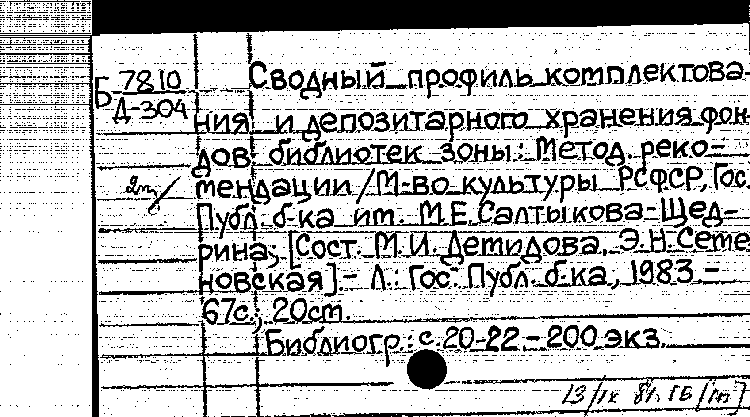 Б 7810
Д-304
Сводный профиль комплектова-
ния и депозитарного хранения фон
дов библиотек зоны: Метод. реко-
мендации / М-во культуры РСФСР, Гос.
Публ. б-ка им. М.Е. Салтыкова-Щед-
рина; [Сост. М.И. Демидова, Э.Н. Семе
новская]. - Л.: Гос. Публ. б-ка, 1983. -
67с.; 20см.
Библиогр.: с. 20-22. - 200 экз.
13/IX